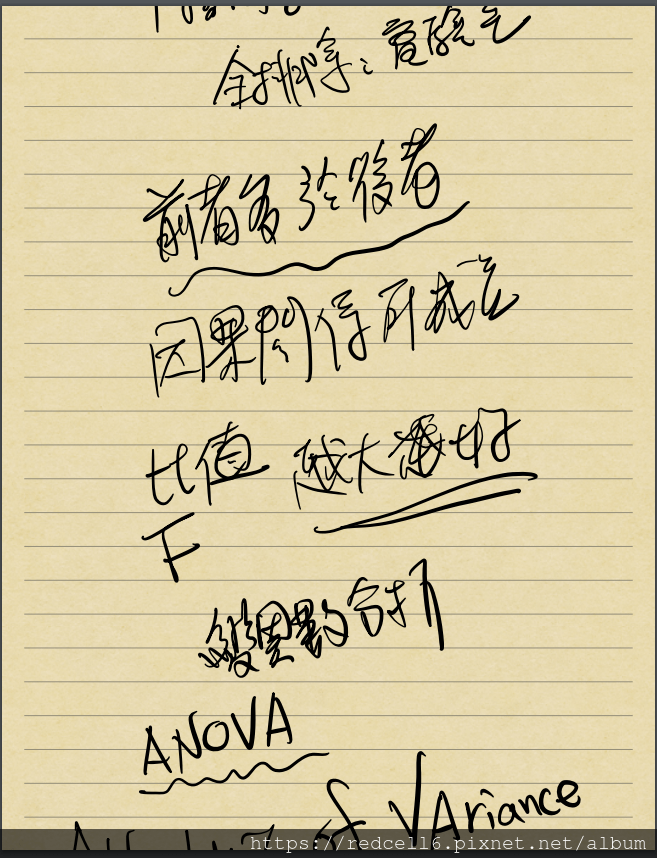 前者多於後者
因果關係 所減之
比值 越大越好
F
變異數分析
ANOVA
of VAriance
https://redcell6.pixnet.net/album